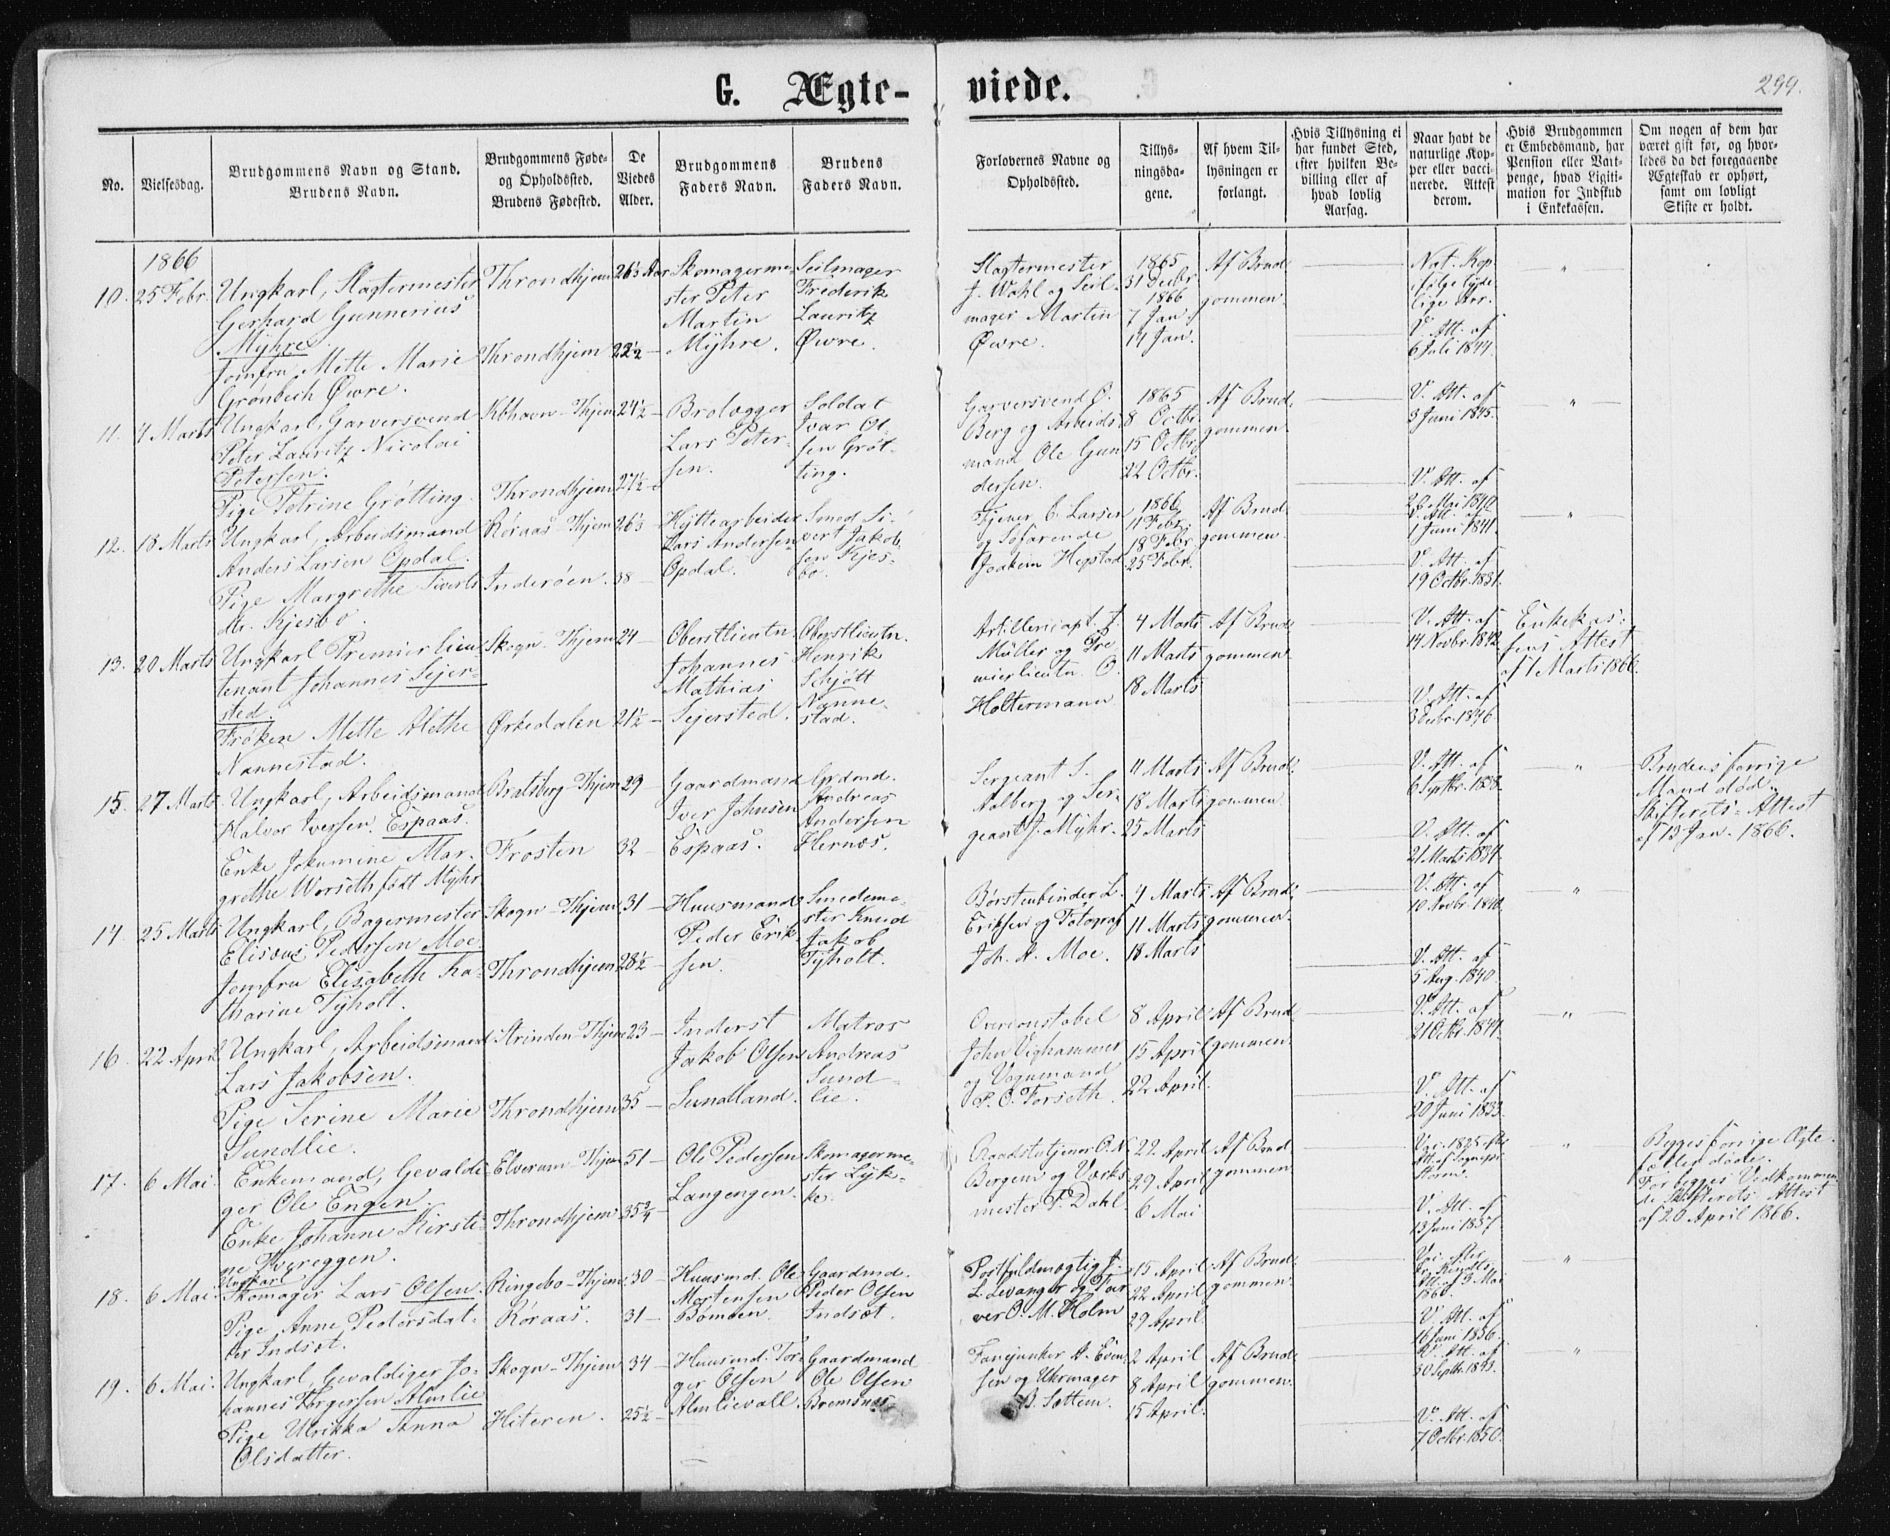 G. Ægte-
viede.
299.
No.
Vielsesdag.
Brudgommens Navn og Stand.
Brudens Navn.
Brudgommens Føde-
og Opholdssted.
Brudens Fødested.
De
Viedes
Alder.
Brudgommens
Faders Navn.
Brudens
Faders Navn.
Forlovernes Navne og
Opholdssted.
Tillys-
ningsda-
gene.
Af hvem Til-
lysningen er
forlangt.
Hvis Tillysning ei
har fundet Sted,
efter hvilken Be-
villing eller af
hvad lovlig
Aarsag.
Naar havt de
naturlige Kop-
per eller vacci-
nerede. Attest
derom.
Hvis Brudgommen
er Embedsmand, har
Pension eller Vart-
penge, hvad Legiti-
mation for Indskud
i Enkekassen.
Om nogen af dem har
været gift før, og hvor-
ledes da det foregaaende
Ægteskab er ophørt,
samt om lovligt
Skifte er holdt.
1866
10. 25 Febr.
Ungkarl, Slagtermester
Gerhard Gunnerius
Myhre
Jomfru Mette Marie
Grønbech Øwre.
Throndhjem
Throndhjem
26⅓ Aar
22½ —
Skomagerme-
ster Peter
Martin
Myhre.
Seilmager
Frederik
Lauritz
Øwre.
Slagtermester
J. Wahl og Seil-
mager Martin
Øwre.
1865
31 Decbr.
1866
7 Jan.
14 Jan.
Af Brud-
gommen
Nat. Kop.
ifølge tyde-
lige Arr.
V. Att. af
6 Juli 1844.
"
11. 4 Marts
Ungkarl, Garversvend
Peter Lauritz Nicolai
Petersen.
Pige Petrine Grøtting.
Kbhavn - Thjem
Throndhjem
24½ —
27½ —
Brolægger
Lars Peter-
sen.
Soldat
Ivar Ol-
sen Grøt-
ting.
Garversvend O.
Berg og Arbeids-
mand Ole Gun
dersen.
1865
8 Octbr.
15 Octbr.
22 Octbr.
Af Brud-
gommen
V. Att. af
3 Juni 1845.
V. Att. af
"
12. 18 Marts
Ungkarl, Arbeidsmand
Anders Larsen Opdal.
Pige Margrethe Siverts
dtr. Kjesbo.
Røraas - Thjem
Inderøen.
26⅓
38 —
Hyttearbeider
Lars Andersen
Opdal.
Smed Si-
vert Jakob-
sen Kjes-
bo.
Tjener C. Larsen
og Søfarende
Joakim Hegstad
1866
11 Febr.
18 Febr.
25 Febr.
Af Brud-
gommen
V. Att. af
1 Juni 1841.
V. Att. af
19 Octbr. 1831.
"
13. 20 Marts
Ungkarl Premierlieu-
tenant Johannes Sejer-
sted
Frøken Mette Alethe
Nannestad.
Skogn - Thjem
Ørkedalen
24 —
21½ —
Oberstlieutn.
Johannes
Mathias
Sejersted.
Oberstlieutn.
Henrik
Schjøtt
Nanne-
stad.
Artillericapt. J.
Müller og Pre
mierlieutn. O.
Holtermann
4 Marts
11 Marts
18 Marts
Af Brud-
gommen
V. Att. af
14 Novbr. 1842.
V. Att. af
3 Decbr. 1846.
Enkekas-
sens Attest
af 1 Marts 1866.
15. 27 Marts
Ungkarl, Arbeidsmand
Halvor Iversen Espaas.
Enke Jokumine Mar-
grethe Worseth født Myhr
Bratsberg - Thjem
Frosten
29 —
32 —
Gaardmand
Iver Johnsen
Espaas.
Grdmd.
Andreas
Andersen
Hernæs.
Sergeant S.
Aalberg og Ser-
geant J. Myhr.
11 Marts
18 Marts
25 Marts
Af Brud-
gommen
V. Att. af
6 Septbr. 1838.
V. Att. af
21 Marts 1834.
"
Brudens forrige
Mand død.
Skifterets Attest
af 13 Jan. 1866.
14. 25 Marts
Ungkarl, Bagermester
Elisæus Pedersen Moe.
Jomfru Elisabeth Ka-
tharine Tyholt.
Skogn - Thjem
Throndhjem
31 —
28½ —
Huusmand
Peder Erik-
sen.
Smedeme-
ster Knud
Jakob
Tyholt.
Børstenbinder L.
Eriksen og Fotograf
Joh. A. Moe.
4 Marts
11 Marts
18 Marts
Af Brud-
gommen
V. Att. af
10 Novbr. 1840.
V. Att. af
5 Aug. 1840.
"
16. 22 April
Ungkarl, Arbeidsmand
Lars Jakobsen.
Pige Serine Marie
Sundlie.
Strinden - Thjem
Throndhjem
23 —
35 —
Inderst
Jakob Olsen
Sundland.
Matros
Andreas
Sund-
lie.
Overconstabel
John Vighammer
og Vognmand
P. O. Forseth.
8 April
15 April
22 April.
Af Brud-
gommen
V. Att. af
21 Octbr. 1844.
V. Att. af
20 Juni 1833.
"
17. 6 Mai.
Enkemand, Gevaldi-
ger Ole Engen
Enke Johanne Kirsti-
ne Hvreggen.
Elverum - Thjem
Throndhjem
51 —
35¾
Ole Pedersen
Langengen.
Skomagerme-
ster Lyk-
ke.
Raadstutjener O. N.
Bergem og Værks-
mester P. Dahl.
22 April
29 April
6 Mai
Af Brud-
gommen
V. Att. af
13 Juni 1837.
"
Begges forrige Ægte-
fæller døde.
For begges Vedkommen-
de Skifterets Attest
af 20 April 1866.
18. 6 Mai.
Ungkarl
Skomager Lars Olsen
Pige Anne Pedersdat-
ter Indsæt.
Ringebo - Thjem
Røraas.
30 —
31 —
Huusmd. Ole
Mortensen
Bømoen.
Gaardmd.
Peder Olsen
Indsæt.
Postfuldmægtig J.
L. Levanger og Far
ver O. M. Holm
15 April
22 April
29 April
Af Brud-
gommen.
V. Att. af
16 Juni 1836.
"
19. 6 Mai.
Ungkarl, Gevaldiger Jo-
hannes Torgersen Almlie
Pige Ulrikka Anna
Olsdatter.
Skogn - Thjem
Hiteren.
34 —
25½ —
Huusmd. Tor-
ger Olsen
Almlievall.
Gaardmand
Ole Olsen
Bremsnæs
Fanejunker A. Even-
sen og Uhrmager
B. Sættem.
2 April
8 April
15 April.
Af Brud-
gommen.
V. Att. af
30 Septbr. 1833.
V. Att. af
7 Octbr. 1850.
"